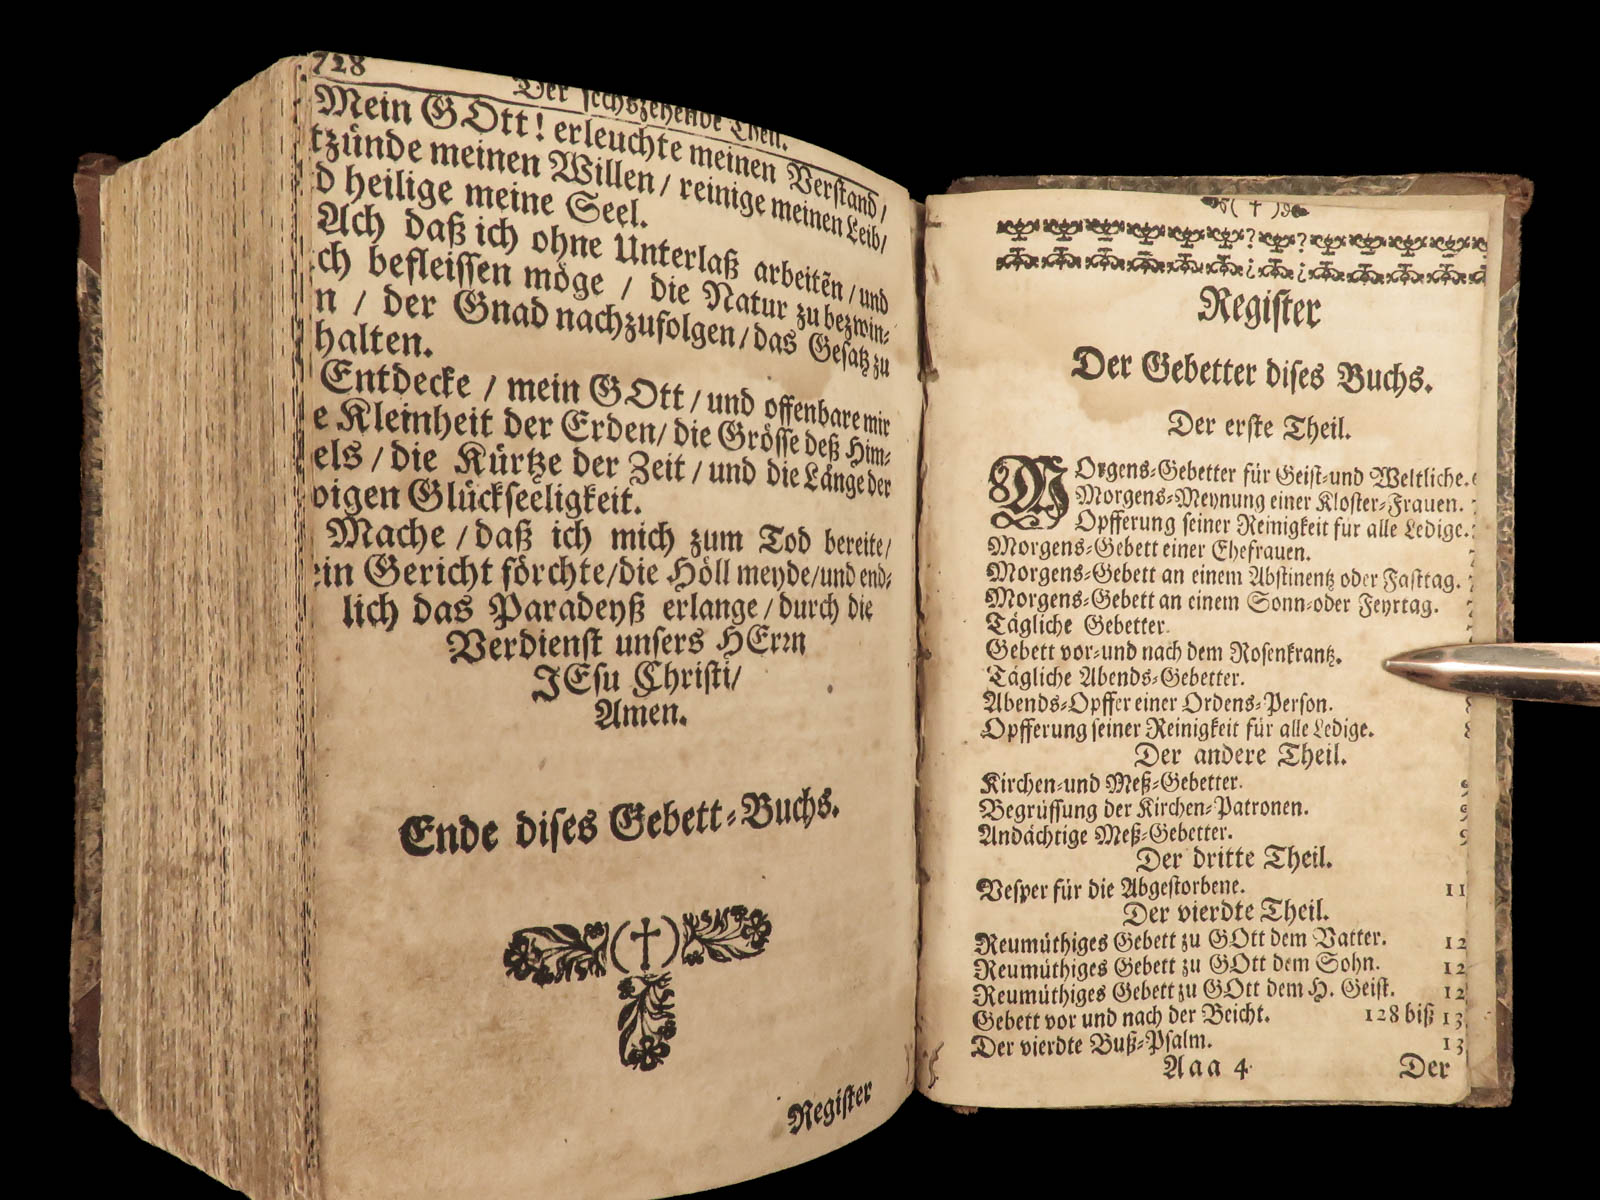 728
Der sechszehende Theil.
Mein GOtt! erleuchte meinen Verstand/
tzünde meinen Willen/ reinige meinen Leib/
d heilige meine Seel.
Ach daß ich ohne Unterlaß arbeitẽn/und
ch befleissen möge / die Natur zu bezwin-
n / der Gnad nachzufolgen/das Gesatz zu
halten.
Entdecke / mein GOtt/und offenbare mir
e Kleinheit der Erden/die Grösse deß Him-
els/die Kürtze der Zeit/und die Länge der
wigen Glückseeligkeit.
Mache/daß ich mich zum Tod bereite/
ein Gericht förchte/die Höll meyde/und end-
lich das Paradeyß erlange/durch die
Verdienst unsers HErrn
JEsu Christi/
Amen.
Ende dises Gebett-Buchs.
Register
( † )
Register
Der Gebetter dises Buchs.
Der erste Theil.
MOrgens-Gebetter für Geist-und Weltliche. 6
Morgens-Meynung einer Kloster-Frauen. 7
Opfferung seiner Reinigkeit für alle Ledige.
Morgens-Gebett einer Ehefrauen. 7
Morgens-Gebett an einem Abstinentz oder Fasttag. 7
Morgens-Gebett an einem Sonn-oder Feyrtag. 7
Tägliche Gebetter.
Gebett vor-und nach dem Rosenkrantz.
Tägliche Abends-Gebetter.
Abends-Opffer einer Ordens-Person. 8
Opfferung seiner Reinigkeit für alle Ledige. 8
Der andere Theil.
Kirchen-und Meß-Gebetter. 9
Begrüssung der Kirchen-Patronen. 9
Andächtige Meß-Gebetter. 9
Der dritte Theil.
Vesper für die Abgestorbene. 11
Der vierdte Theil.
Reumüthiges Gebett zu GOtt dem Vatter. 12
Reumüthiges Gebett zu GOtt dem Sohn. 12
Reumüthiges Gebett zu GOtt dem H. Geist. 12
Gebett vor und nach der Beicht. 128 biß 13
Der vierdte Buß-Psalm. 13
Aaa 4 Der